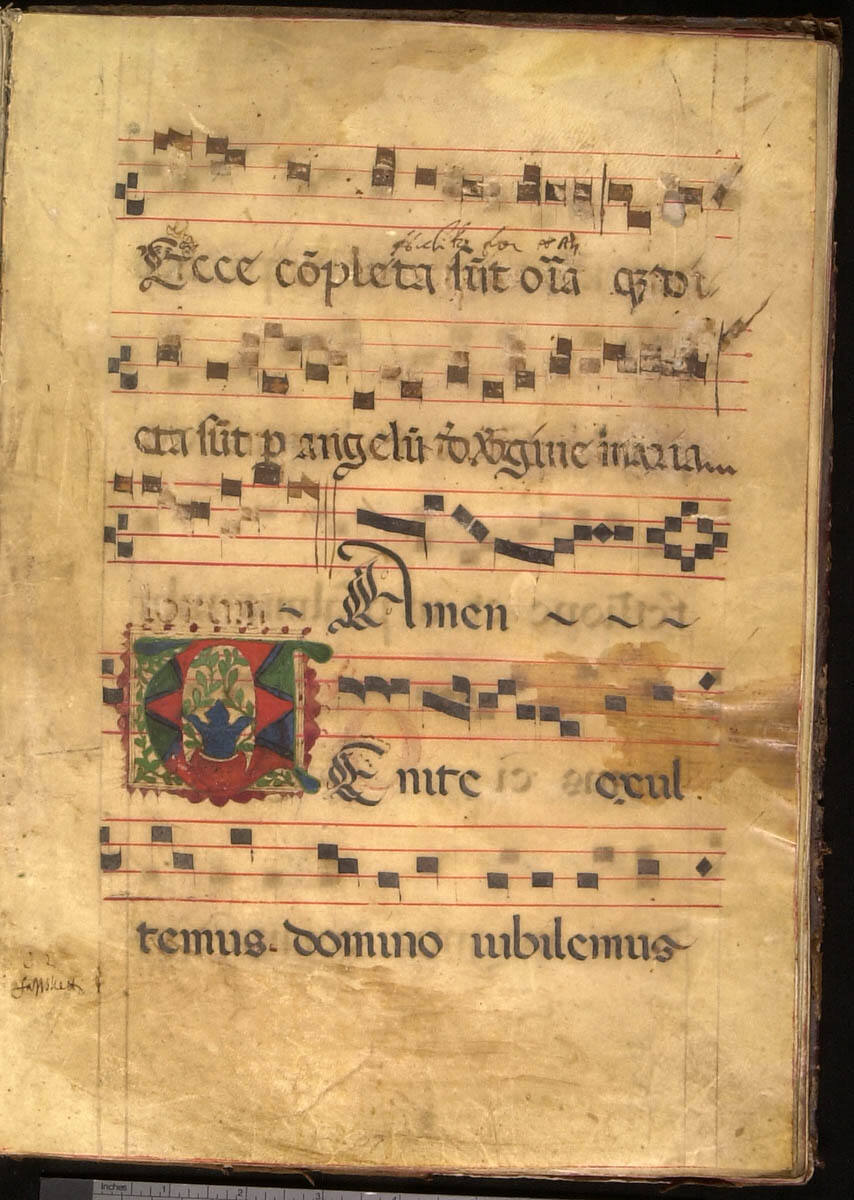 Ecce cõpleta sũt oĩa q̃ di
cta sũt p angelũ d̃ v̓gine maria
Amen
Enite exul
temus. domino iubilemus